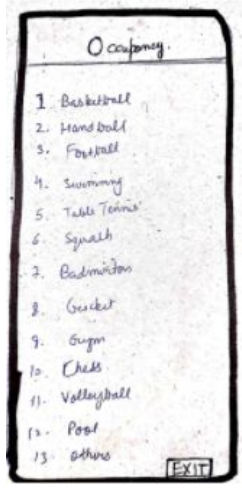 Occupancy.
1 Basketball
2. Handball
3. Football
4. Swimming
5. Table Tennis
6. Squash
7. Badminton
8. Cricket
9. Gym
10. Chess
11. Volleyball
12. Pool
13. others
EXIT